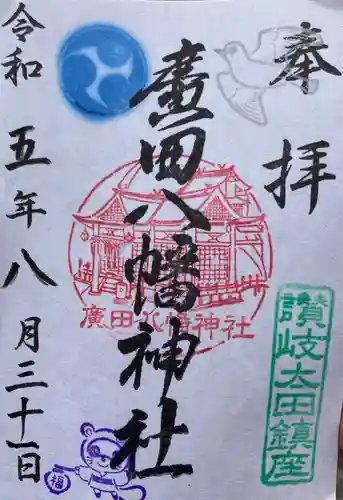 奉拝
讃岐太田鎮座
廣田八幡神社
廣田八幡神社
令和五年八月三十一日
福